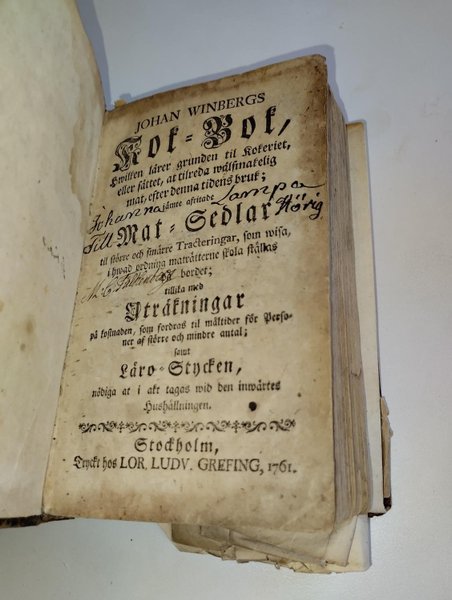 JOHAN WINBERGS
Kok-Bok,
Hwilken lärer grunden til Kokeriet,
eller sättet, at tilreda wälsmakelig
mat, efter denna tidens bruk;
Johanna jämte afritade Lampa
Till Mat-Sedlar Hörig
til större och smärre Tracteringar, som wisa,
i hwad ordning maträtterne skola ställas
bordet;
tillika med
Uträkningar
på kostnaden, som fordras til måltider för Perso-
ner af större och mindre antal;
samt
Läro-Stycken,
nödiga at i akt tagas wid den inwärtes
Hushållningen.
Stockholm,
Tryckt hos LOR. LUDV. GREFING, 1761.